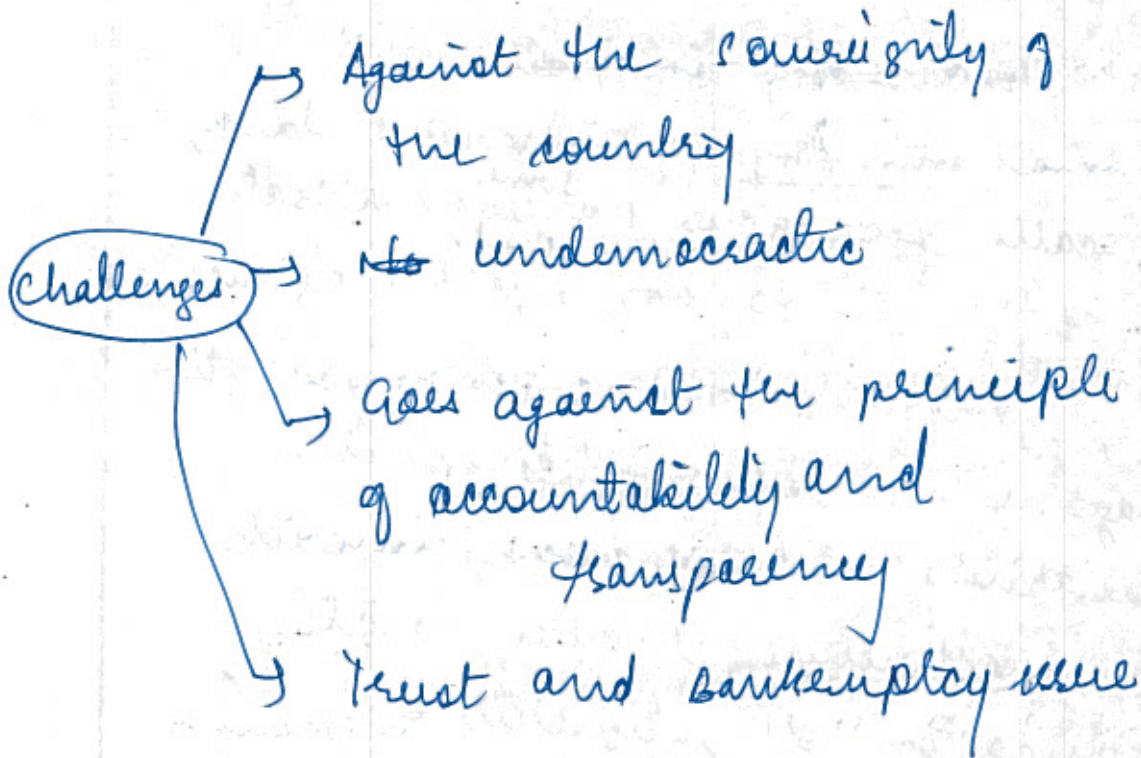 Against the souveignity of
the country
Challenges.
No undemocractic
Goes against the principle
of accountability and
transparency
Trust and Bankemptcy issue